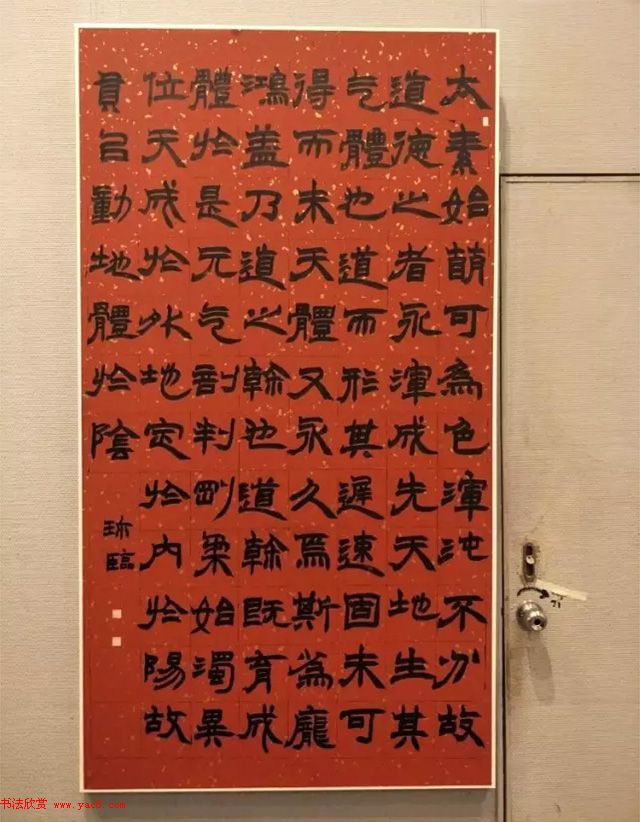 太素始萌可為色渾沌不分故
道德之者永渾成先天地生其
气體也道而形其遲速固未可
得而未天體又永久焉斯為龐
鴻蓋乃道之幹也道幹既育成
體於是元气剖判剛柔始濁異
位天成於外地定於內於陽故
員㠯動地體於陰
臨
书法欣赏 www.yac8.com